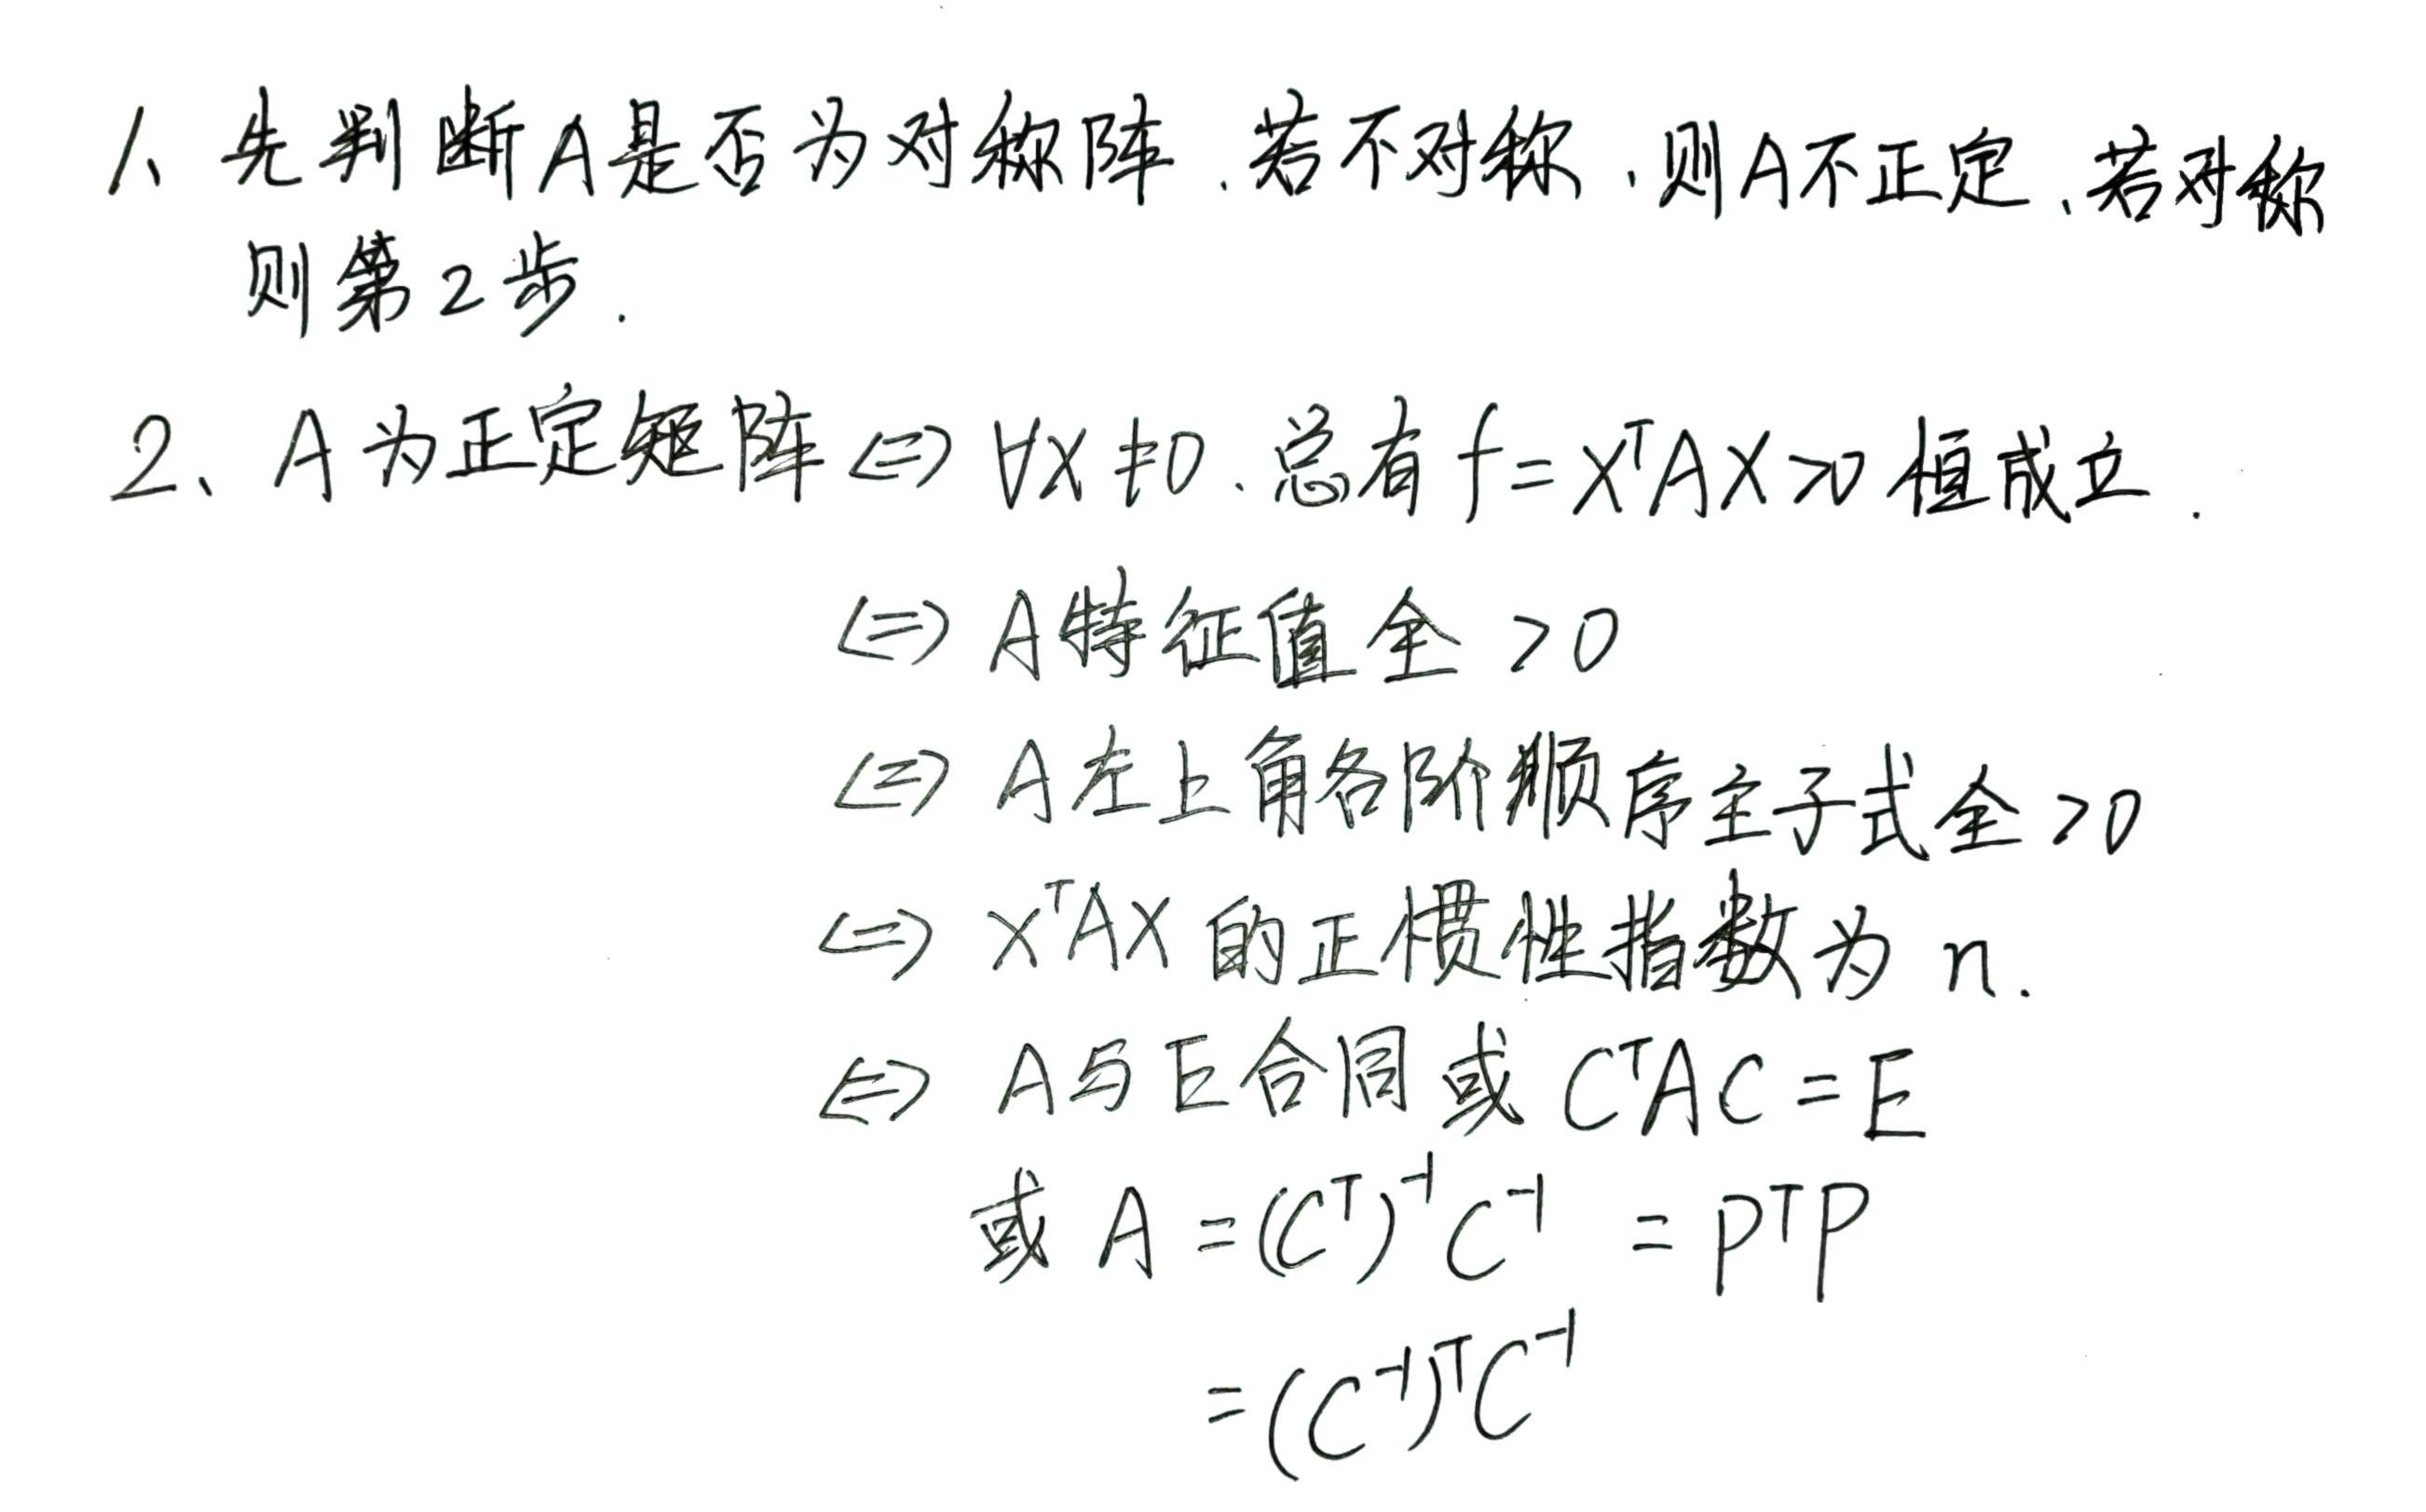 1、先判断A是否为对称阵.若不对称,则A不正定、若对称
则第2步.
2、A为正定矩阵⇔∀X≠0、总有f=XᵀAX>0恒成立.
⇔A特征值全>0
⇔A左上角各阶顺序主子式全>0
⇔XᵀAX的正惯性指数为n.
⇔A与E合同或CᵀAC=E
或A=(Cᵀ)⁻¹C⁻¹=PᵀP
=(C⁻¹)ᵀC⁻¹